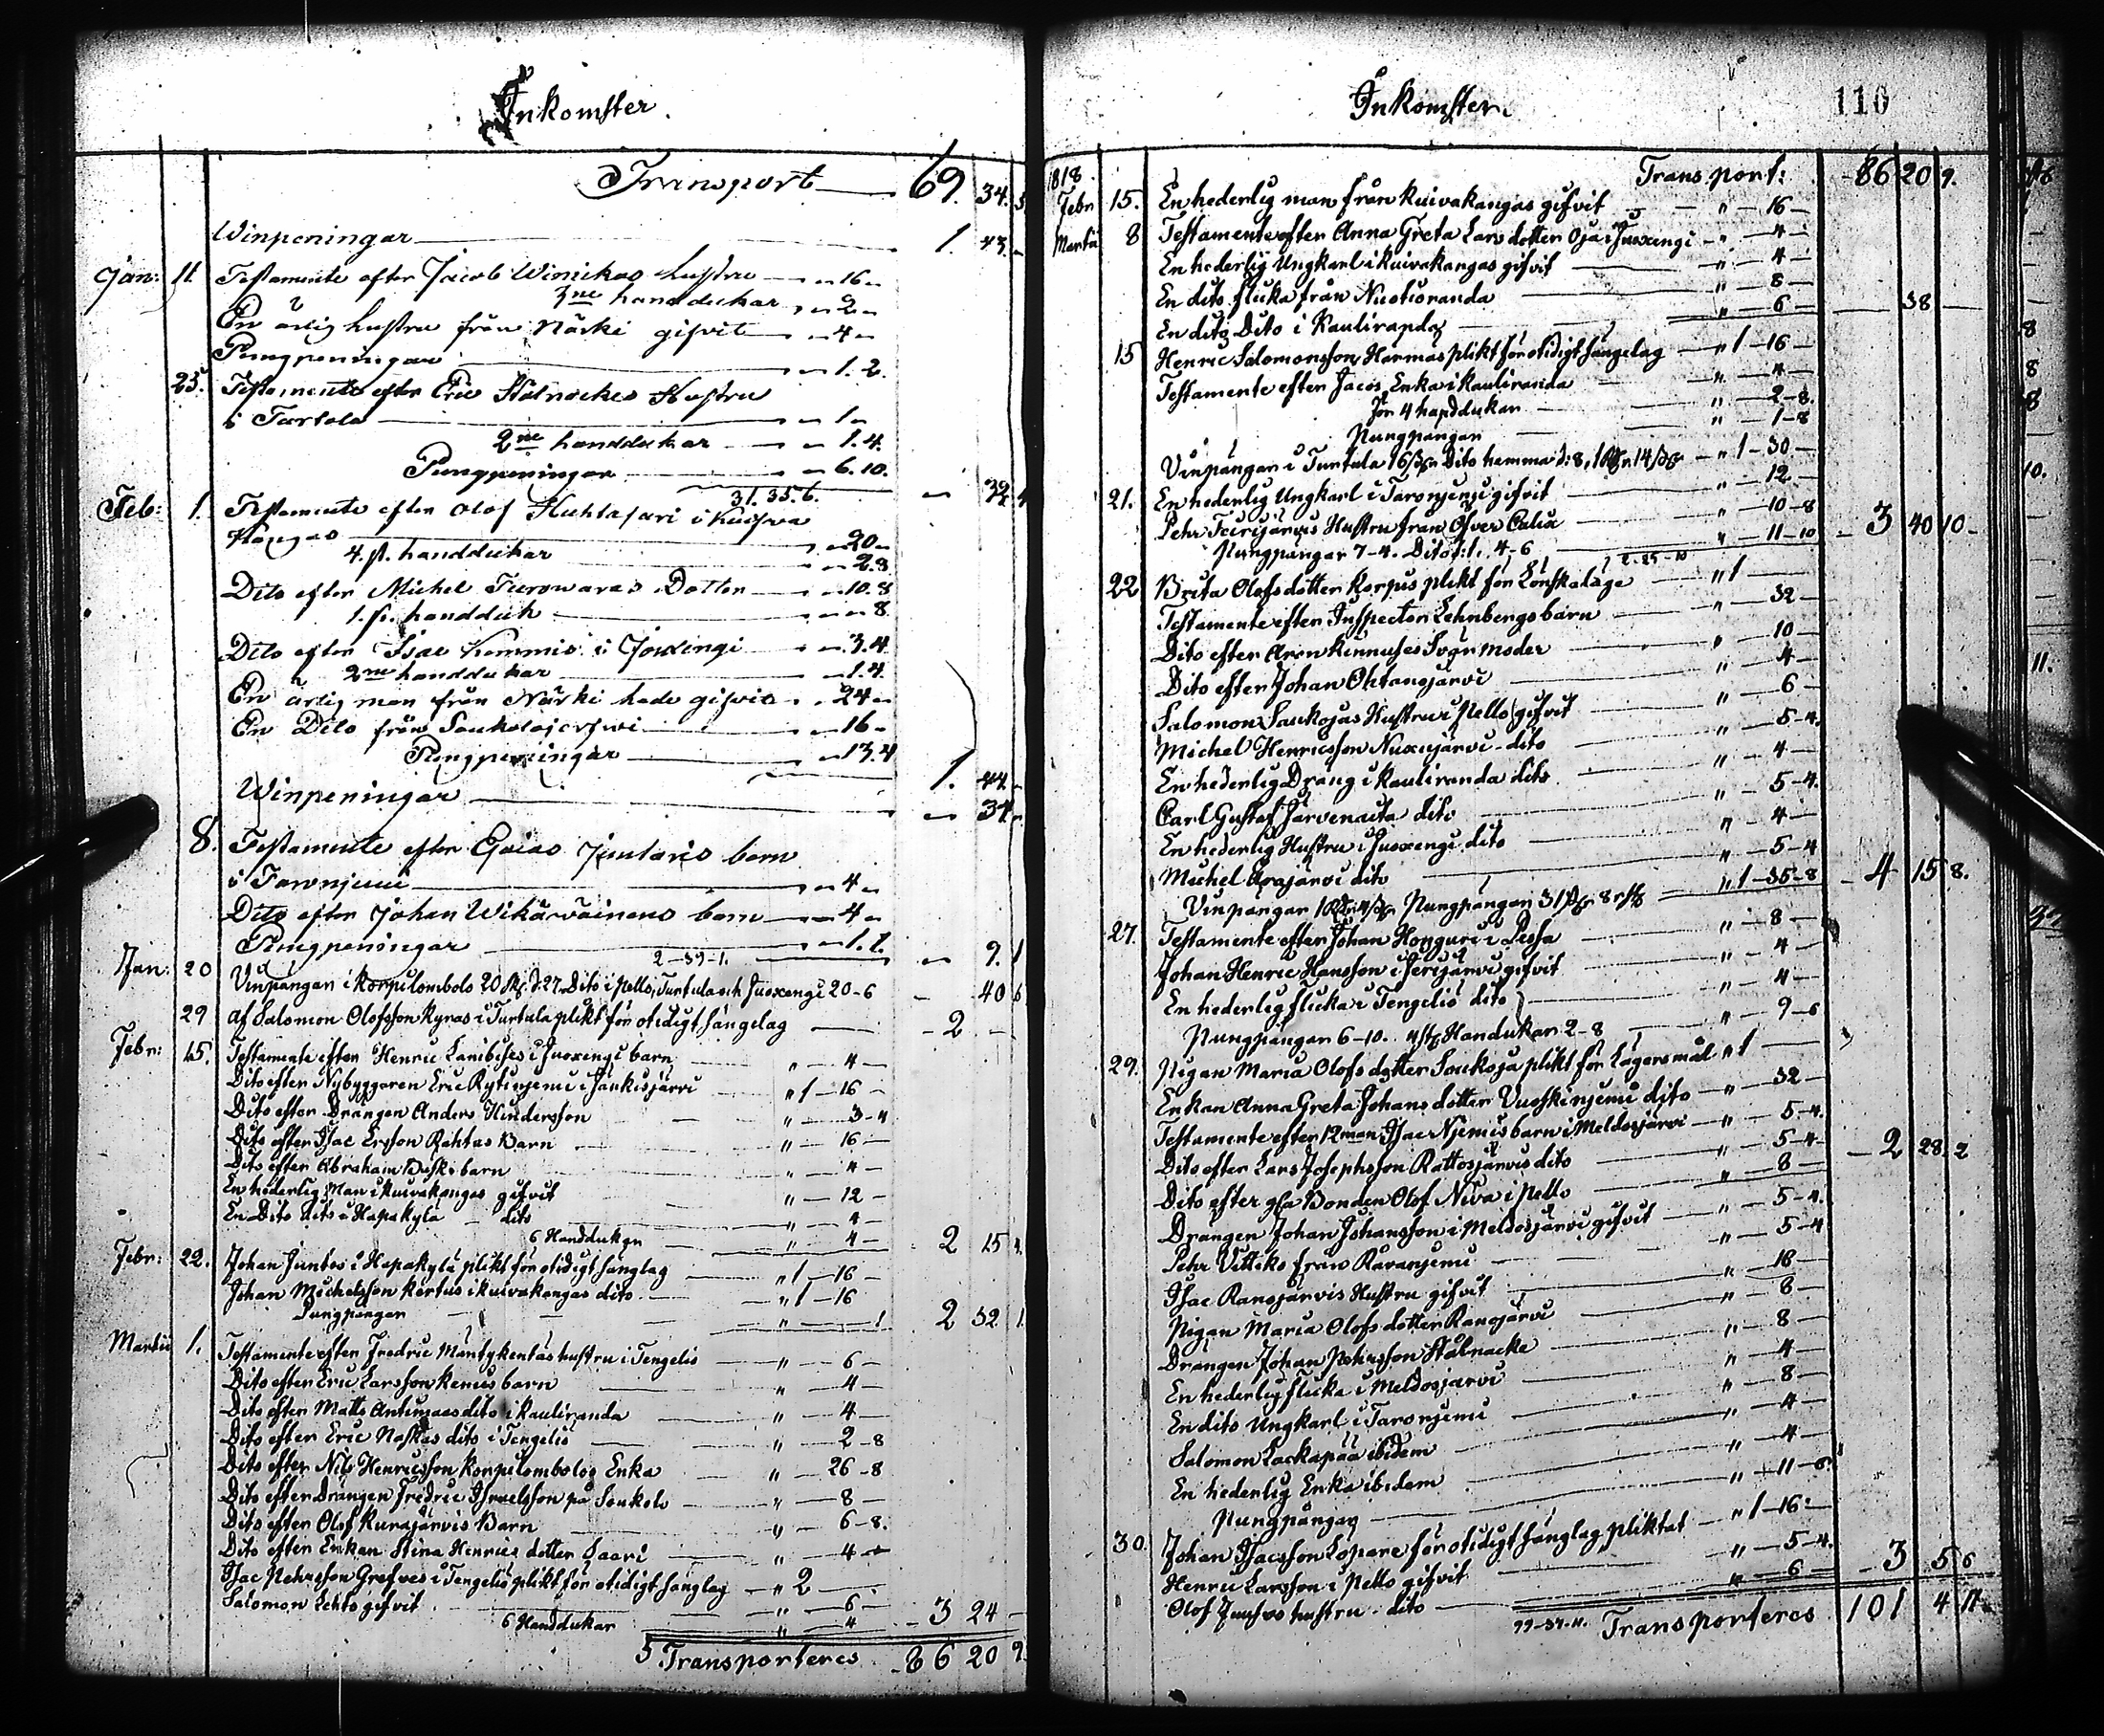 Inkomster.
Transport 69. 34. 5
Winpeningar 1. 43.
Jan: 11. Testamente efter Jacob Winikas hustru 16
3ne handdukar 2
En ärlig hustru från Närki gifvit 4
Pungpeningar 1. 2.
25. Testamente efter Eric Stålnackes Hustru
i Turtola 1
2ne handdukar 1.4.
Pungpeningar 6.10.
31. 35. 6. 32
Feb: 1. Testamente efter Olof Huhtasari i
Kangas 20
4. st. handdukar 2.8
Dito efter Michel Turowaras Dotter 10.8
1. st. handduk 8.
Dito efter Isac Kemmis i Joxengi 3.4
2ne handdukar 1.4.
En ärlig man från Närki hade gifvit 24
En Dito från 16
Pungpeningar 13.4
1. 44.
Winpeningar 34.
8. Testamente efter Esaias Juntaris barn
i Taronjemi 4
Dito efter Johan Wikäwäinens barn 4
Pungpeningar 1.1.
2-39-1. 9. 1
Jan: 20 Vinpängar i Korpilombolo 20 d: 27 Dito i Pello, Turtula och Juoxengi 20-6 40 6
29 af Salomon Olofsson Kyrös i Turtula plikt för otidigt sängelag 2
Febr: 15. Testamente efter Henric Lambises i Juoxengi barn " 4
Dito efter Nybyggaren Eric Kytinjemi i Jaukisjärvi " 1 16
Dito efter Drängen Anders Hindersson " 3-4
Dito efter Isac Ersson Rahtus Barn " 16
Dito efter Abraham Buska barn " 4
En hederlig Man i Kuivakangas gifvit " 12
En Dito dito i Hapakylä dito " 4
6 Handdukar " 4 2 15 4.
Febr: 22. Johan Juntos i Hapakylä plikt för otidigt sänglag " 1 16
Johan Michelsson Kortus i Kuivakangas dito " 1 16
Pungpängar " 1 2 32 1
Martii 1. Testamente efter Fredric Mäntykentäs hustru i Tengeliö " 6
Dito efter Eric Larsson Kenius barn " 4
Dito efter Matts dito i Kauliranda " 4
Dito efter Eric Naskas dito i Tengeliö 2-8
Dito efter Nils Henricsson Korpilombolos Enka " 26-8
Dito efter Drängen Fredric Israelsson på Soukolo " 8
Dito efter Olof Kurajärvis Barn " 6-8.
Dito efter Enkan Stina Henrics dotter Saari " 4
Isac Pehrsson Grefves i Tengeliö plikt för otidigt sänglag " 2
Salomon Lehto gifvit " 6
6 Handdukar " 4 3 24
5 Transporteres 86 20 9.
Inkomster. 110
1818. Transport: 86 20 9.
Febr 15. En hederlig man från Kuivakangas gifvit " 16
Martii 8 Testamente efter Anna Greta Lars dotter Oja i Juoxengi " 4
En hederlig Ungkarl i Kuivakangas gifvit " 4
En dito flicka från Nuotioranda " 8
En dito Dito i Kauliranda " 6 38
15 Henric Salomonsson Harmas plikt för otidigt sängelag " 1 16
Testamente efter Jacos Enka i Kauliranda " 4
för 4 handdukar " 2-8.
Pungpängar " 1-8
Vinpängar i Turtula 16 Dito hemma d: 8, 1 14 " 1-30
21. En hederlig Ungkarl i Taronjemi gifvit " 12
Pehr Teurijärvis Hustru från Öfver Calix " 10-8
Pungpängar 7-4. Dito d: 1. 4-6 " 11-10 3 40 10
22 Brita Olofsdotter Korpus plikt för Lönskaläge " 1
Testamente efter Inspector Lehnbergs barn " 32
Dito efter Aron Kinnuses Svärmoder " 10
Dito efter Johan Ohtanajärvi " 4
Salomon Saukojas Hustru i Pello gifvit " 6
Michel Henricsson Nuxujärvi dito " 5-4.
En hederlig Dräng i Kauliranda dito " 4
Carl Gustaf Järvenaita dito " 5-4.
En hederlig Hustru i Juoxengi dito " 4
Michel Arajärvi dito " 5-4
Vinpängar 1 4 Pungpängar 31 8 " 1-35-8 4 15 8.
27. Testamente efter Johan Honguri i Pessa " 8
Johan Henric Hansson i Jerijärvi gifvit " 4
En hederlig flicka i Tengeliö dito " 4
Pungpängar 6-10. 4 st Handukar 2-8 " 9-6
29. Pigan Maria Olofs dotter Soukoja plikt för Lägersmål " 1
Enkan Anna Greta Johans dotter Vuoskinjemi dito " 32
Testamente efter 12 man Isac Njemis barn i Meldosjärvi " 5-4.
Dito efter Lars Josephsson Rattosjärvis dito " 5-4 2 28 2
Dito efter gla Bonden Olof Niva i Pello " 8
Drängen Johan Johansson i Meldosjärvi gifvit " 5-4.
Pehr Vittiko från Kàranjemi " 5-4
Isac Ranojärvis Hustru gifvit 16
Pigan Maria Olofs dotter Ranojärvi " 8
Drängen Johan Pehrsson Stålnacke " 8
En hederlig flicka i Meldosjärvi " 4
En dito Ungkarl i Taronjemi " 8
Salomon Lackapää ibidem " 4
En hederlig Enka ibidem " 4
Pungpängar " 11-6.
30. Johan Isacsson Lopare för otidigt sänglag pliktat " 1-16
Henric Larsson i Pello gifvit " 5-4.
Olof Juusos hustru dito " 6 3 5 6
99-37-11. Transporteres 101 4 11